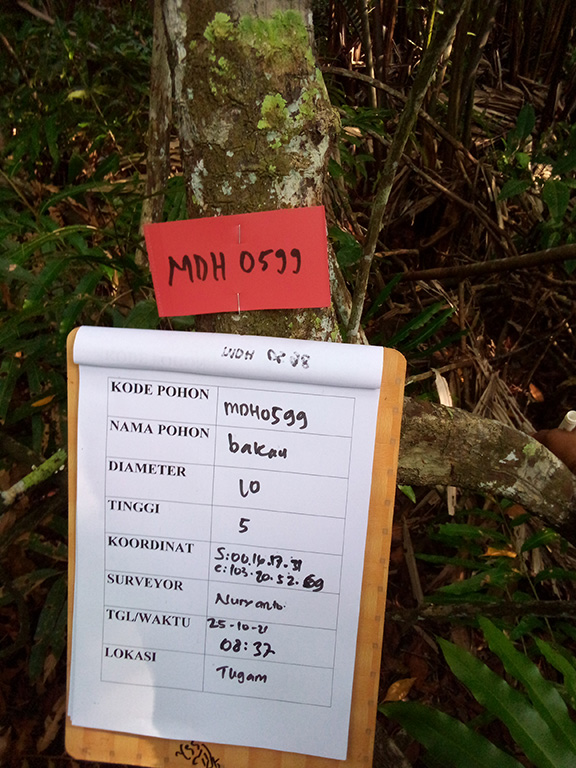 MDH 0599
MDH
KODE POHON MDH0599
NAMA POHON bakau
DIAMETER 10
TINGGI 5
KOORDINAT S:00.16.
E:103.20.52.
SURVEYOR Nuryanto
TGL/WAKTU 25-10-21
08:37
LOKASI Tugam